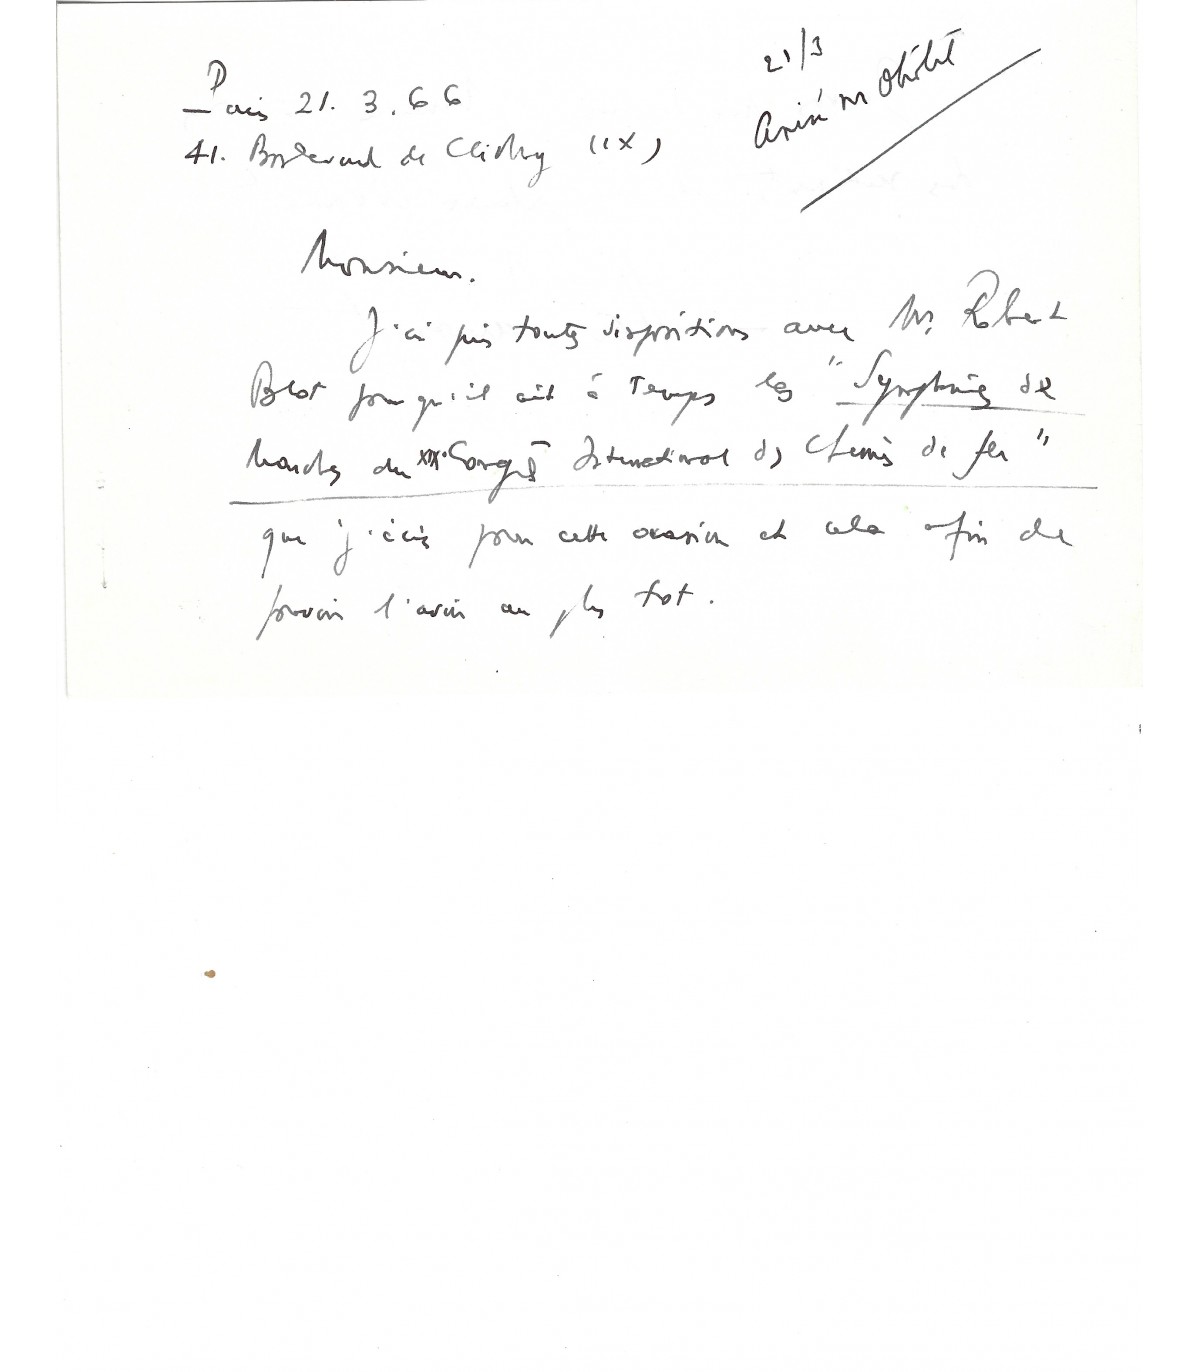 Paris 21.3.66
41. Boulevard de Clichy (IX)
21/3
Avisé M
Monsieur.
J'ai pris toutes dispositions avec M. Robert
Blot pour qu'il ait à temps les "Symphonies de
Marches du XIX Congrès International des Chemins de fer"
que j'écris pour cette occasion et cela afin de
pouvoir l'avoir au plus tot.